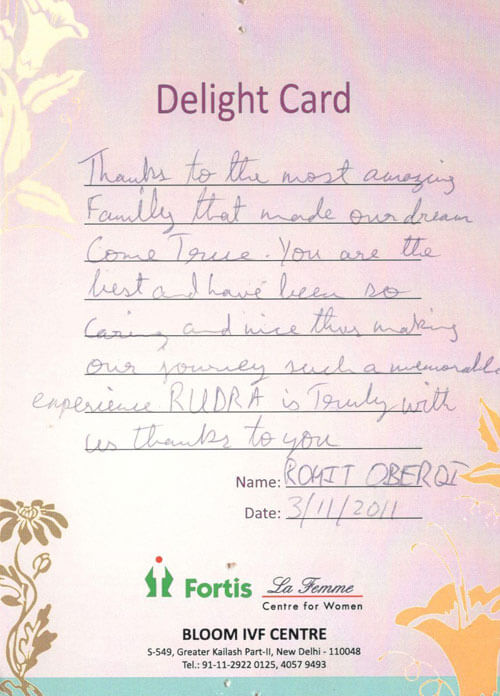 Delight Card
Thanks to the most amazing
Family that made our dream
Come True. You are the
best and have been so
Caring and nice thus making
our journey such a memorable
experience RUDRA is Truly with
us thanks to you
Name: ROHIT OBEROI
Date: 3/11/2011
Fortis La Femme
Centre for Women
BLOOM IVF CENTRE
S-549, Greater Kailash Part-II, New Delhi - 110048
Tel.: 91-11-2922 0125, 4057 9493